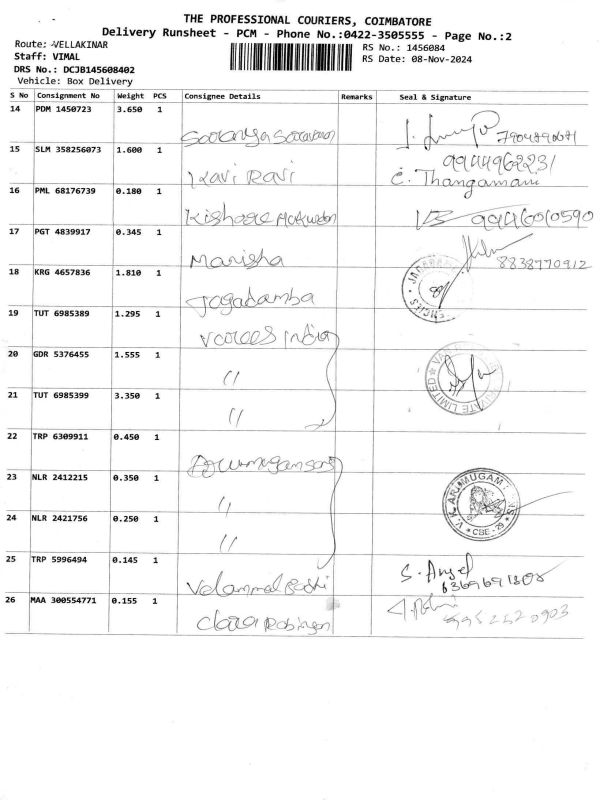 THE PROFESSIONAL COURIERS, COIMBATORE
Delivery Runsheet - PCM - Phone No.:0422-3505555 - Page No.:2
Route: VELLAKINAR
RS No.: 1456084
Staff: VIMAL
RS Date: 08-Nov-2024
DRS No.: DCJB145608402
Vehicle: Box Delivery
S No Consignment No Weight PCS Consignee Details Remarks Seal & Signature
14 PDM 1450723 3.650 1
15 SLM 358256073 1.600 1 Ravi Ravi 9944962231
C. Thangamani
16 PML 68176739 0.180 1 Kishore 99446010590
17 PGT 4839917 0.345 1 Marisha 8838770912
18 KRG 4657836 1.810 1 Jagadamba
19 TUT 6985389 1.295 1 India
20 GDR 5376455 1.555 1 "
PRIVATE LIMITED
21 TUT 6985399 3.350 1 "
22 TRP 6309911 0.450 1
23 NLR 2412215 0.350 1 "
V.K. ARUMUGAM
CBE-29
24 NLR 2421756 0.250 1 "
25 TRP 5996494 0.145 1 Velammal S. Angel
26 MAA 300554771 0.155 1 Clara Robinson